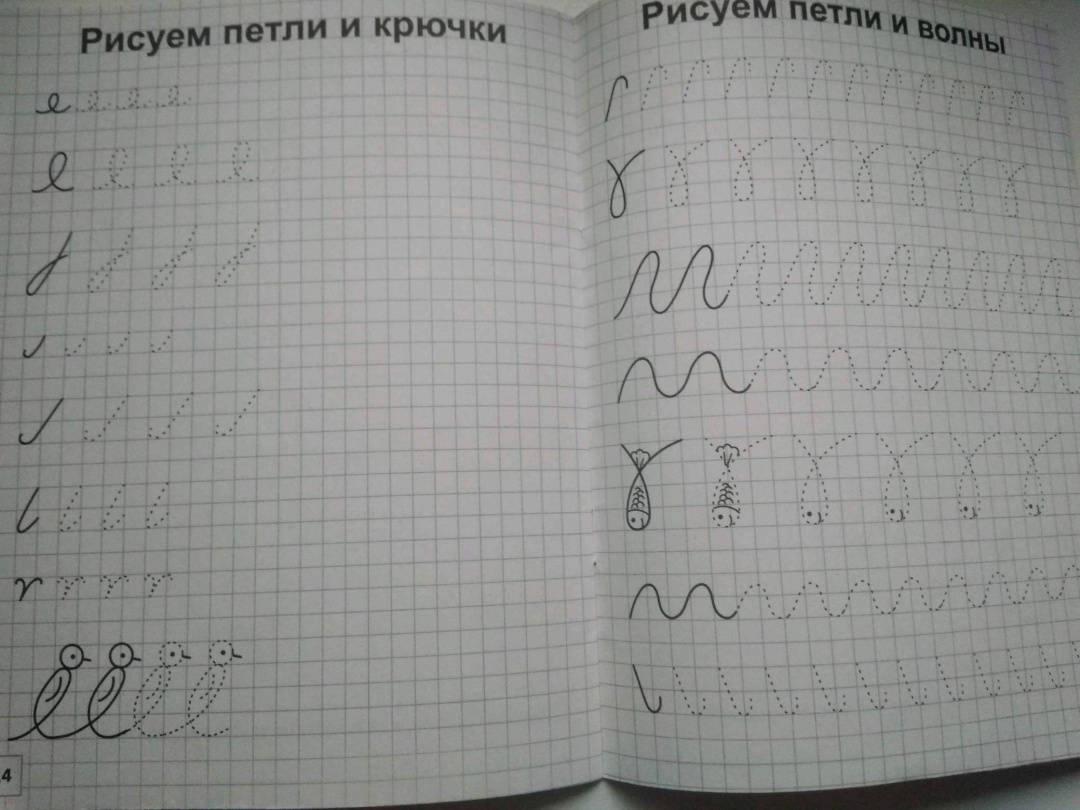 Рисуем петли и крючки
Рисуем петли и волны
4